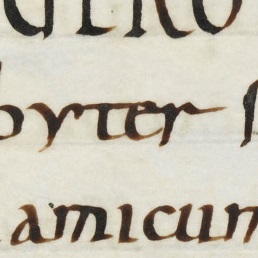 GERO
byter s
amicum